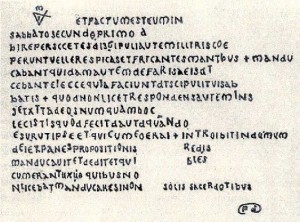 ETFACTUMESTEUMIN
SABBATOSECUNDOPRIMO A
BIREPERSCCETESDISGIPULIAUTEMILLIRISCOE
PERUNTUELLERESPICASETFRICANTESMANTBUS + MANDU
CABANTQUIDAMAUTEMDEFARISAEISDT
CEBANTELECCEQUIAFACIUNTDISCIPULITUISAB
BATIS + QUODNONLICETRESPONDENSAUTEMINS
SETXTTADEOSNUMQUAMHOC
LECISTISQUODFECITDAUTDQUANDO
ESURUTIPSEETQUICUMEOERAI + INTROIBITINDUMUM
DEIETPANESPROPOSITIONIS REDIS
MANDUCAUITETDEDITETQUI BLES
CUMERANTUXUO QUIBUSNO
NLICEBATMANDUCARESINON SOLIS SACERDOTIBUS